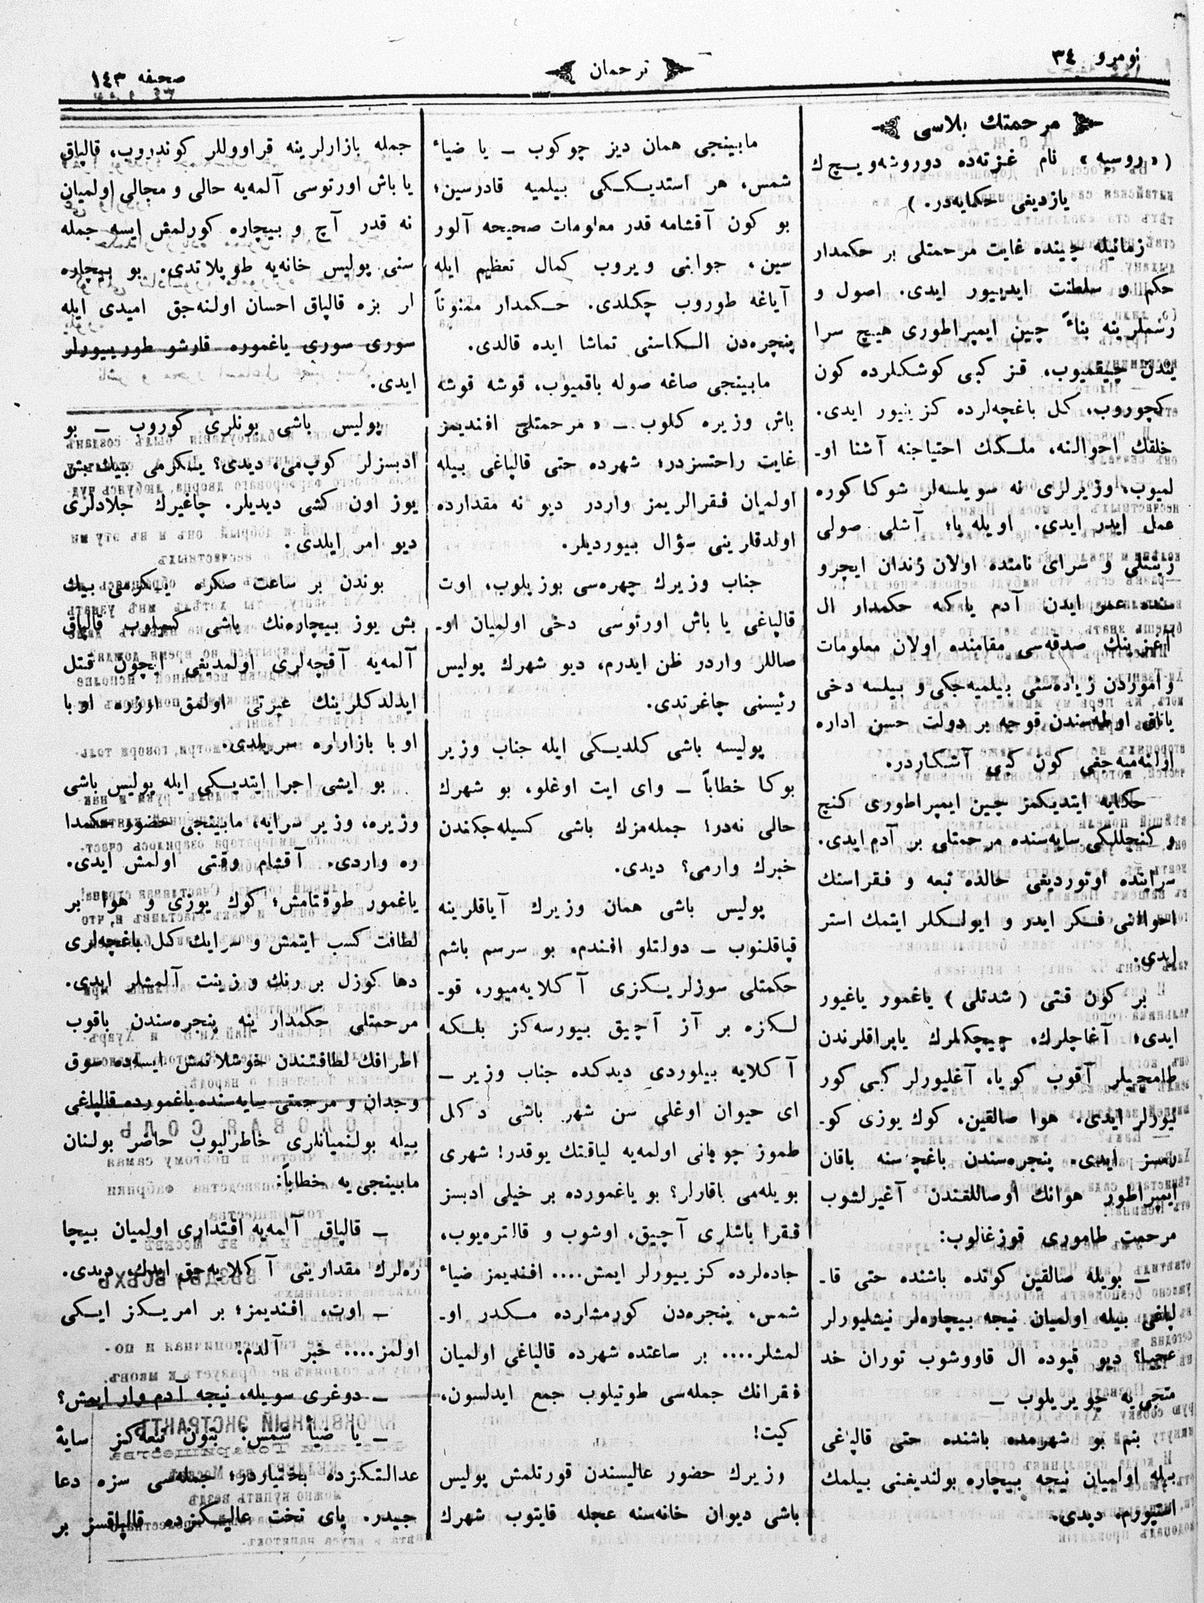 نومرو ٣٤
ترجمان
صحيفه ١٤٣
مرحمتك بلاسى
(«روسيه» نام غزته‌ده دوروشه‌ويچ‌ك
يازديغى حكايه‌در.)
زمانيله چينده غايت مرحمتلى بر حكمدار
حكم و سلطنت ايدييور ايدى. اصول و
رسملرينه بناءً چين ايمپراطورى هيچ سرا
يندن چيقميوب، قز كبى كوشكلرده كون
كچوروب، كل باغچه‌لرده كزييور ايدى.
خلقك احوالنه، ملكك احتياجنه آشنا او-
لميوب، وزيرلرى نه سويلسه‌لر شوكا كوره
عمل ايدر ايدى. اويله يا؛ آشلى صولى
زينتلى و سراى نامنده اولان زندان ايچرو
سنده عمر ايدن آدم ياكه حكمدار ال
آغزينك صدقه‌سى مقامنده اولان معلومات
و آموردن زياده‌سنى بيلميه‌جكى و بيلسه دخى
ياتاق اوطه‌سندن قوجه بر دولت حسن اداره
اولنه‌ميه‌جغى كون كبى آشكاردر.
حكايه ايتديكمز چين ايمپراطورى كنج
و كنجلليكى سايه‌سنده مرحمتلى بر آدم ايدى.
سراينده اوتورديغى حالده تبعه و فقراسنك
احوالنى فكر ايدر و ايولكلر ايتمك استر
ايدى.
بر كون قتى (شدتلى) ياغمور ياغيور
ايدى؛ آغاچلرك، چيچكلرك ياپراقلرندن
طامچيلر آقوب كويا، آغليورلر كبى كور
ليورلر ايدى. هوا صالقين، كوك يوزى كو-
رلمسز ايدى. پنجره‌سندن باغچه‌سنه باقان
ايمپراطور هوانك اوصاللقندن آغيرلشوب
مرحمت طامورى قوزغالوب:
ـ بويله صالقين كونده باشنده حتى قا-
لپاغى بيله اولميان نيجه بيچاره‌لر نيشليورلر
عجبا؟ ديو قپوده ال قاووشوب توران خد
متجى‌يه چويريلوب ـ
بنم بو شهرمده باشنده حتى قالپاغى
بيله اولميان نيجه بيچاره بولنديغنى بيلمك
استيورم، ديدى.
مابينجى همان ديز چوكوب ـ يا ضياء
شمس، هر استديككى بيلميه قادرسين؛
بو كون آقشامه قدر معلومات صحيحه آلور
سين، جوابنى ويروب كمال تعظيم ايله
آياغه طوروب چكلدى. حكمدار ممنوناً
پنجره‌دن الكاسنى تماشا ايده قالدى.
مابينجى صاغه صوله باقميوب، قوشه قوشه
باش وزيره كلوب ـ «مرحمتلى افنديمز
غايت راحتسزدر؛ شهرده حتى قالپاغى بيله
اولميان فقرالريمز واردر ديو نه مقدارده
اولدقلرينى سؤال بيورديلر.
جناب وزيرك چهره‌سى بوزيلوب، اوت
قالپاغى يا باش اورتوسى دخى اولميان او-
صاللر واردر ظن ايدرم، ديو شهرك پوليس
رئيسنى چاغرتدى.
پوليسه باشى كلديكى ايله جناب وزير
بوكا خطاباً ـ واى ايت اوغلو، بو شهرك
حالى نه‌در؛ جمله‌مزك باشى كسيله‌جكندن
خبرك وارمى؟ ديدى.
پوليس باشى همان وزيرك آياقلرينه
قپاقلنوب ـ دولتلو افندم، بو سرسم باشم
حكمتلى سوزلريكزى آكلايه‌ميور، قو-
لكزه بر آز آچيق بيورسه‌كز بلكه
آكلايه بيلوردى ديدكده جناب وزير ـ
اى حيوان اوغلى سن شهر باشى دكل
طموز چوبانى اولمه‌يه لياقتك يوقدر! شهرى
بويله‌مى باقارلر؟ بو ياغمورده بر خيلى ادبسز
فقرا باشلرى آچيق، اوشوب و قالتره‌يوب،
جاده‌لرده كزييورلر ايمش.... افنديمز ضياء
شمس، پنجره‌دن كورمشلرده مكدر او-
لمشلر.... بر ساعتده شهرده قالپاغى اولميان
فقرانك جمله‌سى طوتيلوب جمع ايدلسون،
كيت!
وزيرك حضور عاليسندن قورتلمش پوليس
باشى ديوان خانه‌سنه عجله قايتوب شهرك
جمله بازارلرينه قراوللر كوندروب، قالپاق
يا باش اورتوسى آلمه‌يه حالى و مجالى اولميان
نه قدر آچ و بيچاره كورلمش ايسه جمله
سنى پوليس خانه‌يه طوپلاتدى. بو بيچاره
لر بزه قالپاق احسان اولنه‌جق اميدى ايله
سورى سورى ياغموره قارشو طورييورلر
ايدى.
پوليس باشى بونلرى كوروب ـ بو
ادبسزلر كوپ‌مى، ديدى؟ يكرمى بيك بش
يوز اون كشى ديديلر. چاغيرك جلادلرى
ديو امر ايلدى.
بوندن بر ساعت صكره يكرمى بيك
بش يوز بيچاره‌نك باشى كسيلوب قالپاق
آلمه‌يه آقچه‌لرى اولمديغى ايچون قتل
ايدلدكلرينك عبرتى اولمق اوزره اوبا
اوبا بازارلره سريلدى.
بو ايشى اجرا ايتديكى ايله پوليس باشى
وزيره، وزير سرايه، مابينجى حضور حكمدا
ره واردى. آقشام وقتى اولمش ايدى.
ياغمور طوقتامش؛ كوك يوزى و هوا بر
لطافت كسب ايتمش و سرايك كل باغچه‌لرى
دها كوزل بر رنك و زينت آلمشلر ايدى.
مرحمتلى حكمدار ينه پنجره‌سندن باقوب
اطرافك لطافتندن خوشلانمش ايسه‌ده سوق
وجدان و مرحمتى سايه‌سنده ياغمورده قالپاغى
بيله بولنميانلرى خاطرليوب حاضر بولنان
مابينجى‌يه خطاباً:
ـ قالپاق آلمه‌يه اقتدارى اولميان بيچا
ره‌لرك مقدارينى آكلايه‌جق ايدك، ديدى.
ـ اوت، افنديمز؛ بر امريكز ايكى
اولمز.... خبر آلدم.
ـ دوغرى سويله، نيجه آدم وار ايمش؟
ـ يا ضياء شمس؛ بتون تبعه‌كز سايۀ
عدالتكزده بختيارد؛ جمله‌سى سزه دعا
جيدر. پاى تخت عاليكزده قالپاقسز بر